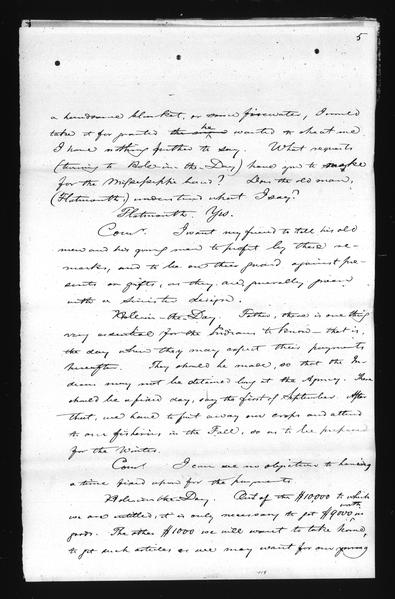 5
a handsome blanket, or some firewater, I would
take it for granted he wanted to cheat me.
I have nothing further to say. What requests
(turning to Hole-in-the-Day,) have you to make
for the Mississippi band? Does the old man,
(Flatmouth,) understand what I say?
Flatmouth. Yes.
Com'r. I want my friend to tell his old
men and his young men to profit by these re-
marks, and to be on their guard against pre-
sents or gifts, as they are generally given
with a sinister design.
Hole-in-the-Day. Father, there is one thing
very essential for the Indians to know - that is,
the day when they may expect their payments
hereafter. They should be made, so that the In-
dians may not be detained long at the Agency. There
should be a fixed day, say the first of September. After
that, we have to put away our crops and attend
to our fisheries in the Fall, so as to be prepared
for the Winter.
Com'r. I can see no objection to having
a time fixed upon for the payments.
Hole-in-the-Day. Out of the $10,000 to which
we are entitled, it is only necessary to get $9000 worth in
goods. The other $1000 we will want to take home,
to get such articles as we may want for our young